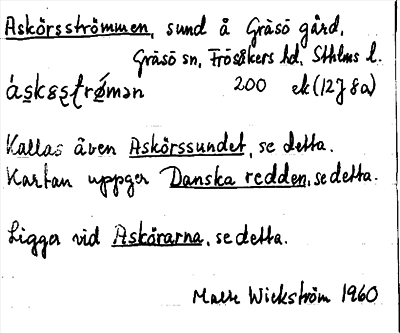 Askörsströmmen, sund å Gräsö gård,
Gräsö sn, Frösåkers hd, Sthlms l.
200 ek (12J 8a)
Kallas även Askörssundet, se detta.
Kartan uppger Danska redden, se detta.
Ligger vid Askörarna, se detta.
Wickström 1960